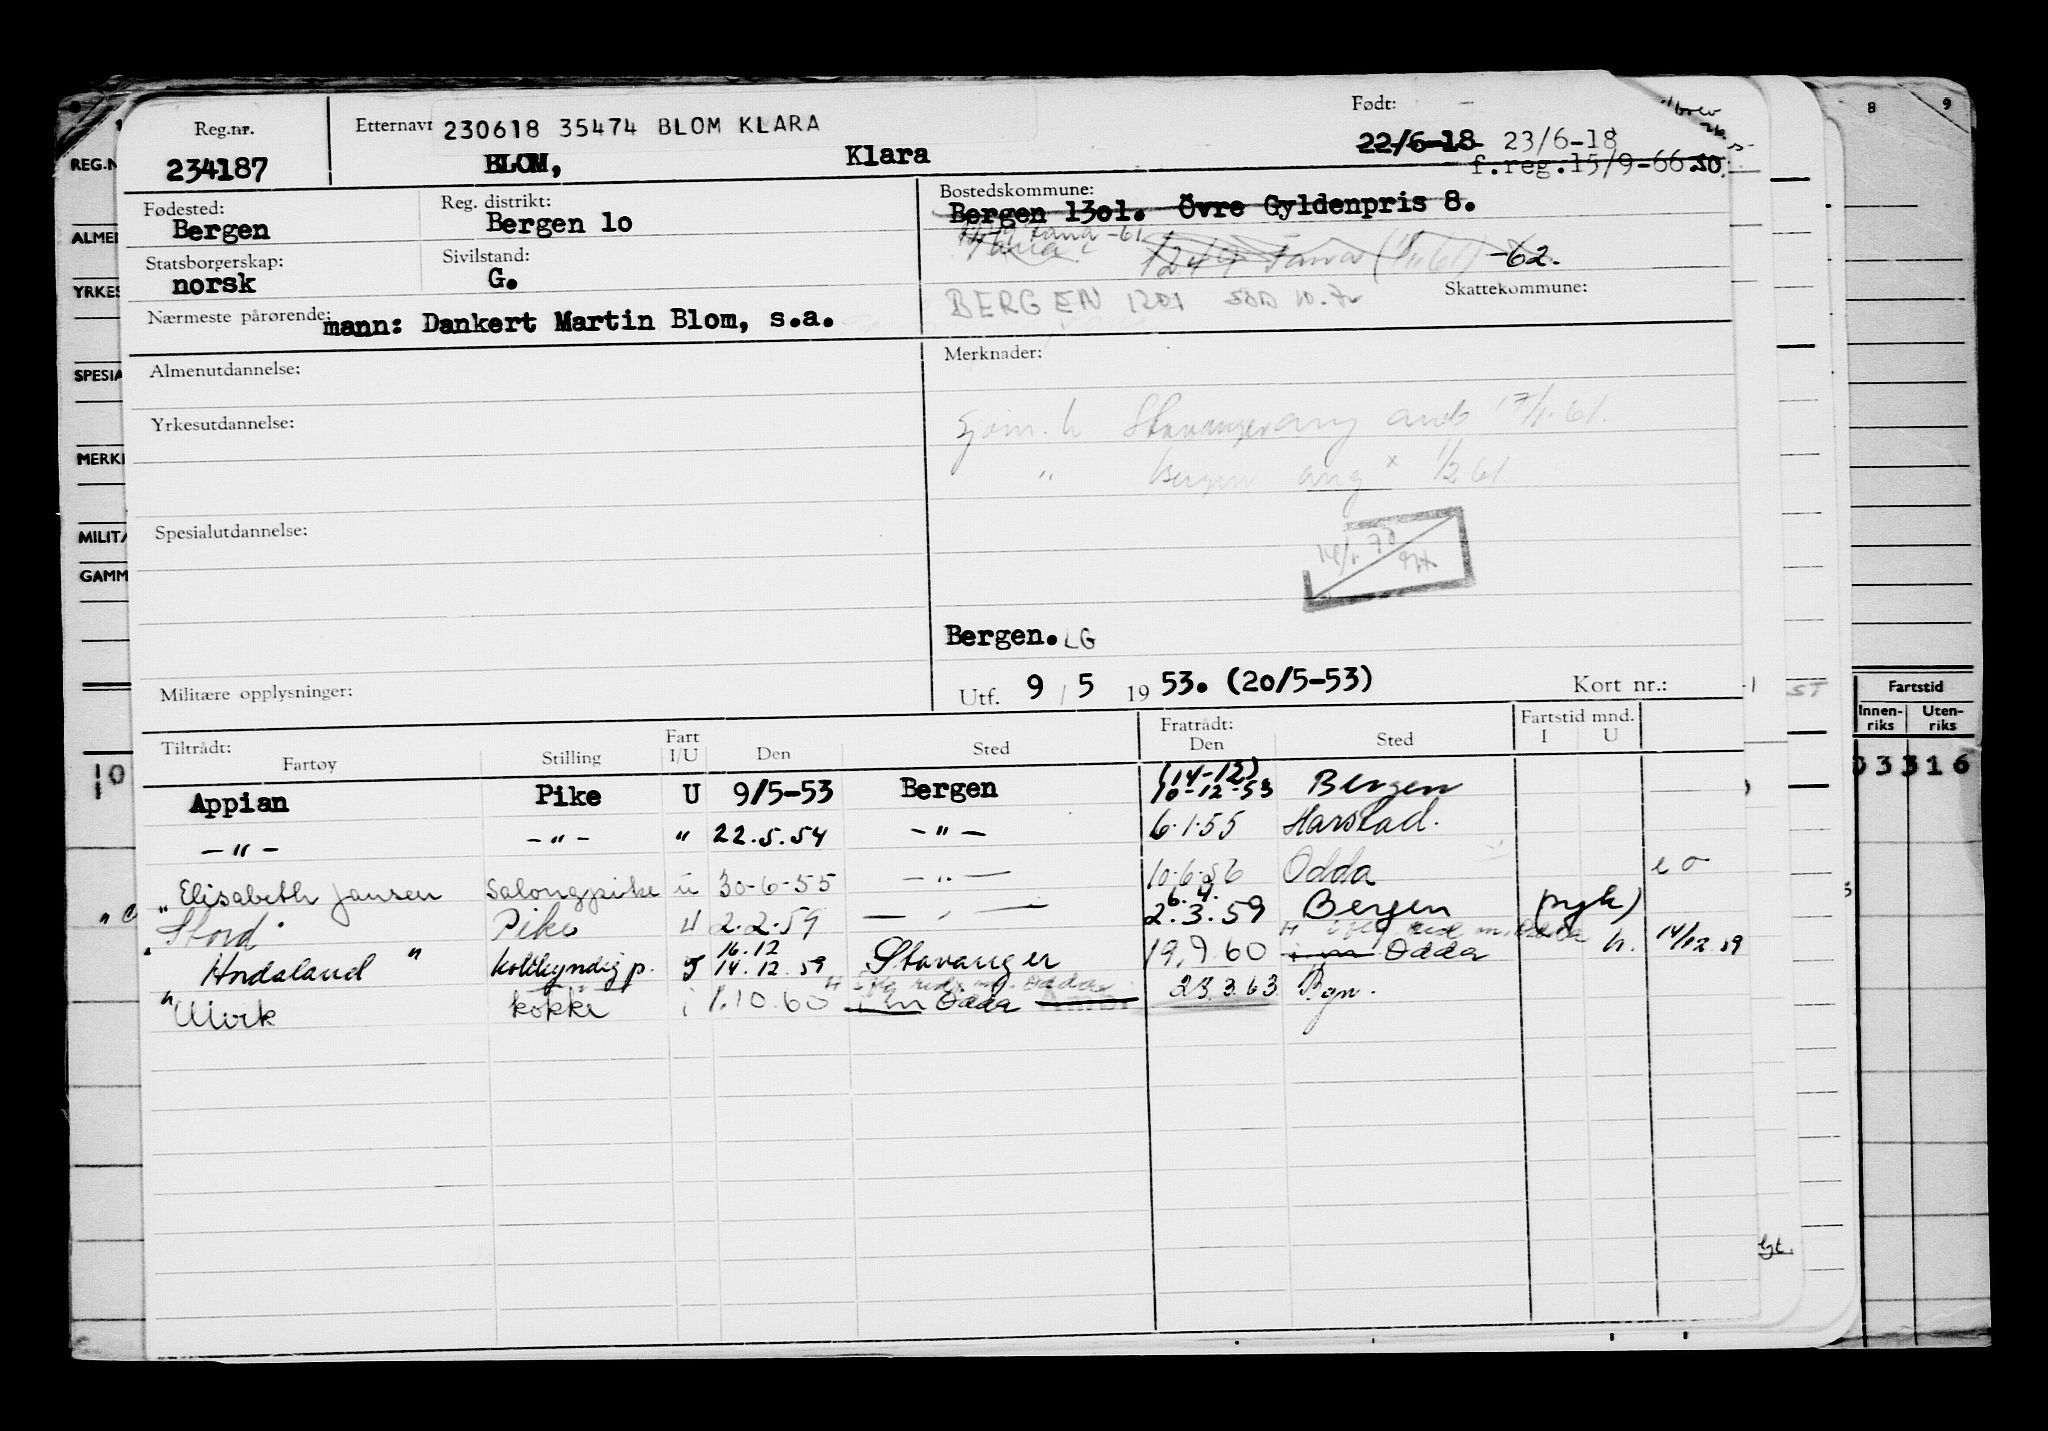 8 9
Reg.nr. Etternavn 230618 35474 BLOM KLARA Født:
234187 BLOM, Klara 22/6-18 23/6-18
f.reg.15/9-66 50.
REG.N
Fødested: Reg. distrikt: Bostedskommune:
Bergen Bergen 10 Bergen 1301. Övre Gyldenpris 8.
ALME
Statsborgerskap: Sivilstand: -62.
norsk G.
YRKES
BERGEN 1201 Skattekommune:
Nærmeste pårørende: mann: Dankert Martin Blom, s.a.
Almenutdannelse: Merknader:
SPESIA
Yrkesutdannelse: Sjøm. h Stavanger ang 17/1.61.
" Bergen ang x 1/2 61
MERK
Spesialutdannelse:
MILIT
GAMM
Bergen. LG
Militære opplysninger: Utf. 9 / 5 19 53. (20/5-53) Kort nr.:
ST Fartstid
Innen-riks Uten-riks
Tiltrådt: Fratrådt: Fartstid mnd.
Fartøy Stilling Fart I/U Den Sted Den Sted I U
(14-12)
Appian Pike U 9/5-53 Bergen 10-12-53 Bergen
3 3 1 6
— " — — " — " 22.5.54 — " — 6.1.55 Harstad.
"Elisabeth Jansen Salongpike u 30-6-55 — " — 10.6.56 Odda
6.4.
"Stord" Pike U 2.2.59 — " — 2.3.59 Bergen (syk)
16.12
"Hordaland" koldkyndig p. 14.12.59 Stavanger 19.9.60 Odda h. 14/12.59
"Ulvik kokke i 1.10.60 Odda 23.3.63 Bgn.